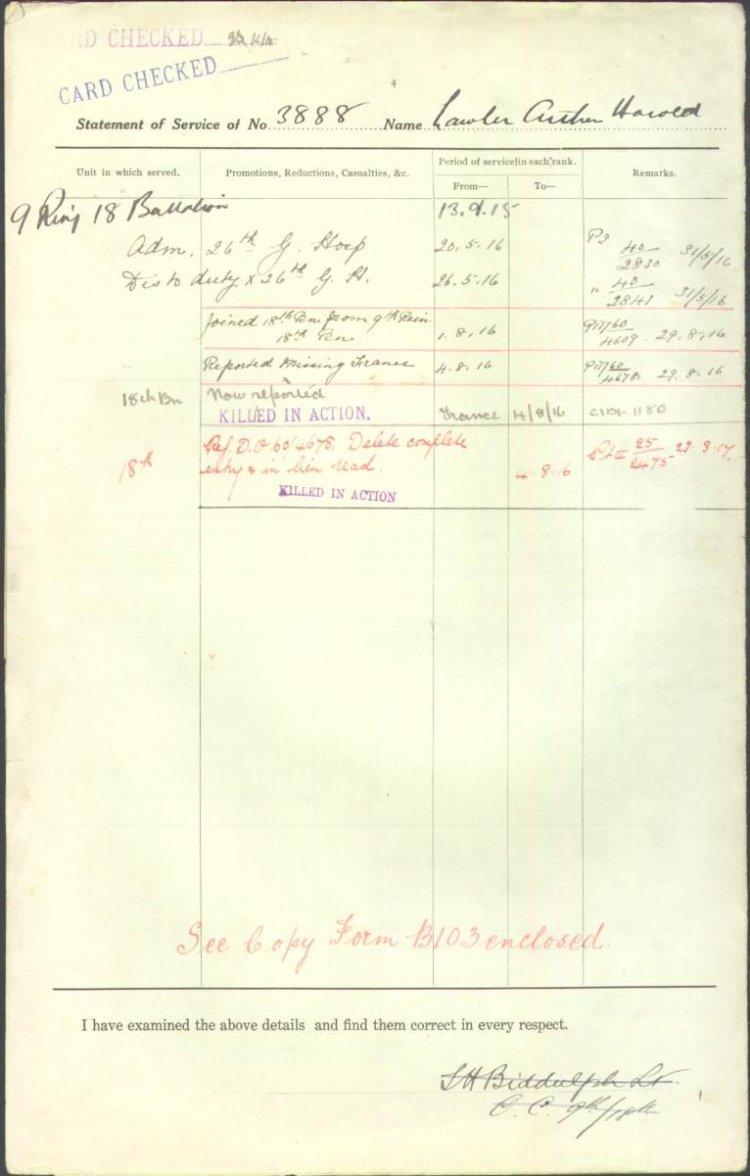 CARD CHECKED
CARD CHECKED
4
Statement of Service of No 3888 Name Lawler Arthur Harold
Unit in which served. Promotions, Reductions, Casualties, &c. Period of service in each rank. Remarks.
From— To—
9 Rinf 18 Battalion 13.9.15
Adm. 26th G. Hosp 20.5.16 P2 40/2830 31/5/16
Dis to duty x 26th G. H. 26.5.16 " 40/2841 31/5/16
Joined 18th Bn from 9th Rein 18th Bn 1.8.16 60/4609. 29.8.16
Reported Missing France 4.8.16 60/4678 29.8.16
18th Bn Now reported
KILLED IN ACTION. France 4/8/16 1180
18th Ref. D.O 60/4678, Delete complete 25/2475 23.8.17
entry & in lieu read. 4.8.16
KILLED IN ACTION
See Copy Form B103 enclosed.
I have examined the above details and find them correct in every respect.
Biddulph Lt
O. C. 9th/18th